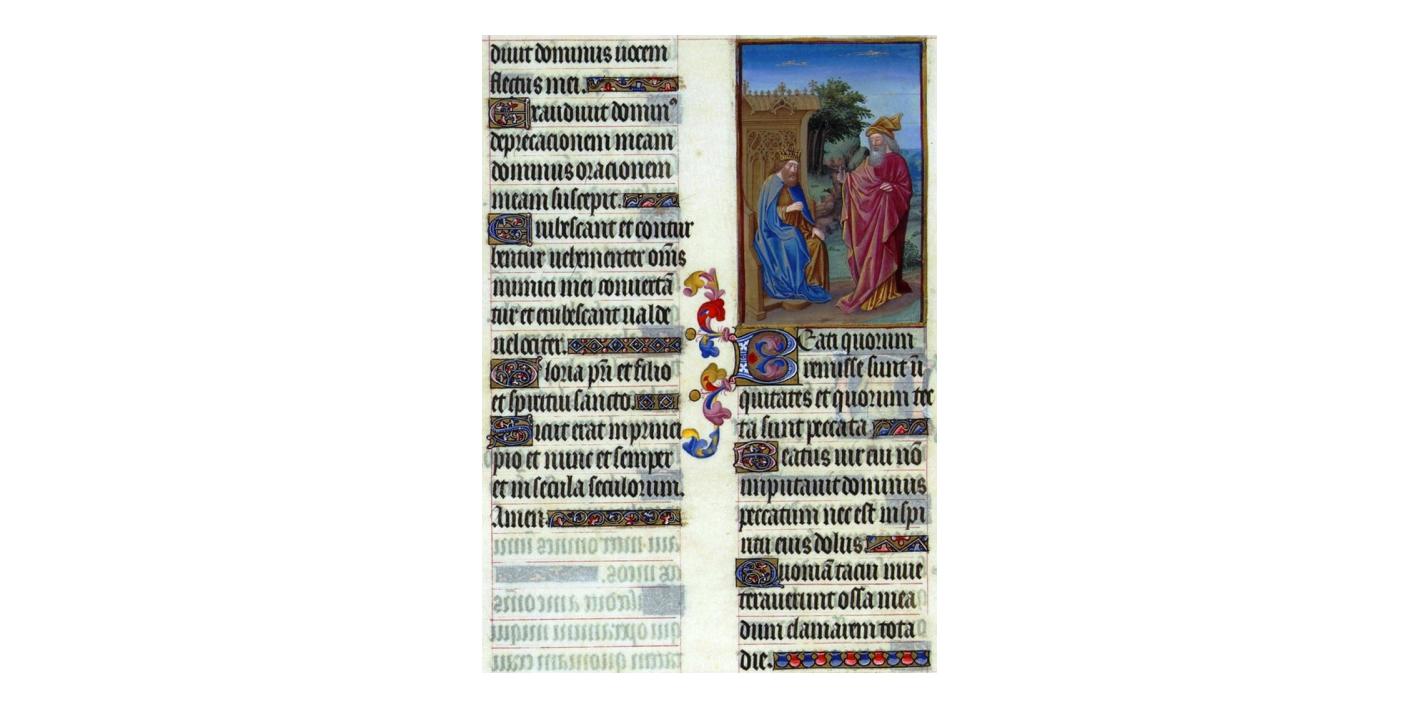 diuit dominus uocem
fletus mei.
Exaudiuit dominꝰ
deprecacionem meam
dominus oracionem
meam suscepit.
Erubescant et contur
bentur uehementer om̄s
inimici mei conuertā
tur et erubescant ualde
uelociter.
Gloria pr̄i et filio
et spiritui sancto.
Sicut erat in princi
pio et nunc et semper
et in secula seculorum.
Amen.
Beati quorum
remisse sunt ī
quitates et quorum tec
ta sunt peccata.
Beatus uir cui nō
imputauit dominus
peccatum nec est in spi
ritu eius dolus.
Quoniā tacui inue
terauerunt ossa mea
dum clamarem tota
die.